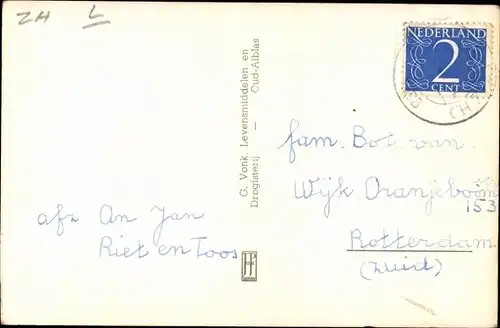 ZH L
NEDERLAND
2
CENT
G. Vonk, Levensmiddelen en
Drogisterij — Oud-Alblas
afz An Jan
Riet en Toos
fam. Bot van
Wijk Oranjeboom
153
Rotterdam
(Zuid)